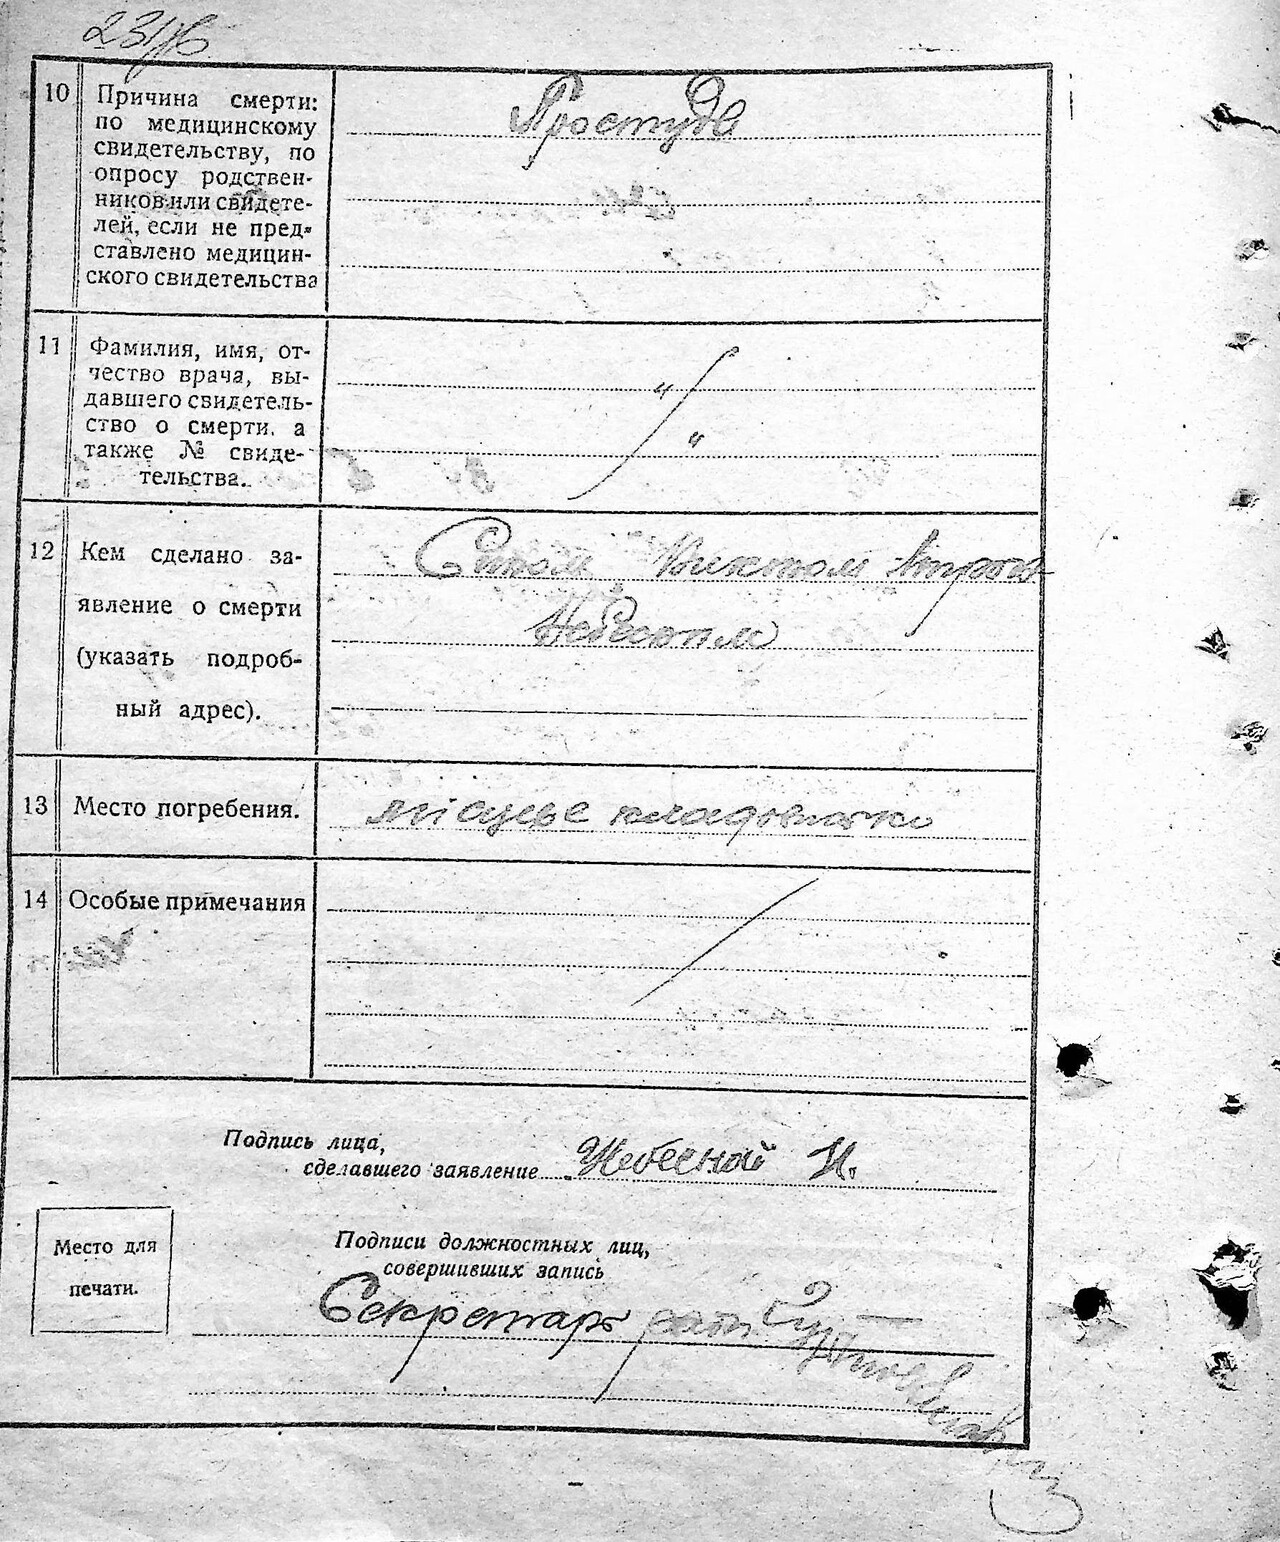 10
Причина смерти:
по медицинскому
свидетельству, по
опросу родствен-
ников или свидете-
лей, если не пред-
ставлено медицин-
ского свидетельства
Простуда
11
Фамилия, имя, от-
чество врача, вы-
давшего свидетель-
ство о смерти, а
также № свиде-
тельства.
" "
12
Кем сделано за-
явление о смерти
(указать подроб-
ный адрес).
Сином
Небесним
13
Место погребения.
місцеве кладовище
14
Особые примечания
Подпись лица,
сделавшего заявление Небесной И.
Место для
печати.
Подписи должностных лиц,
совершивших запись
Секретарь